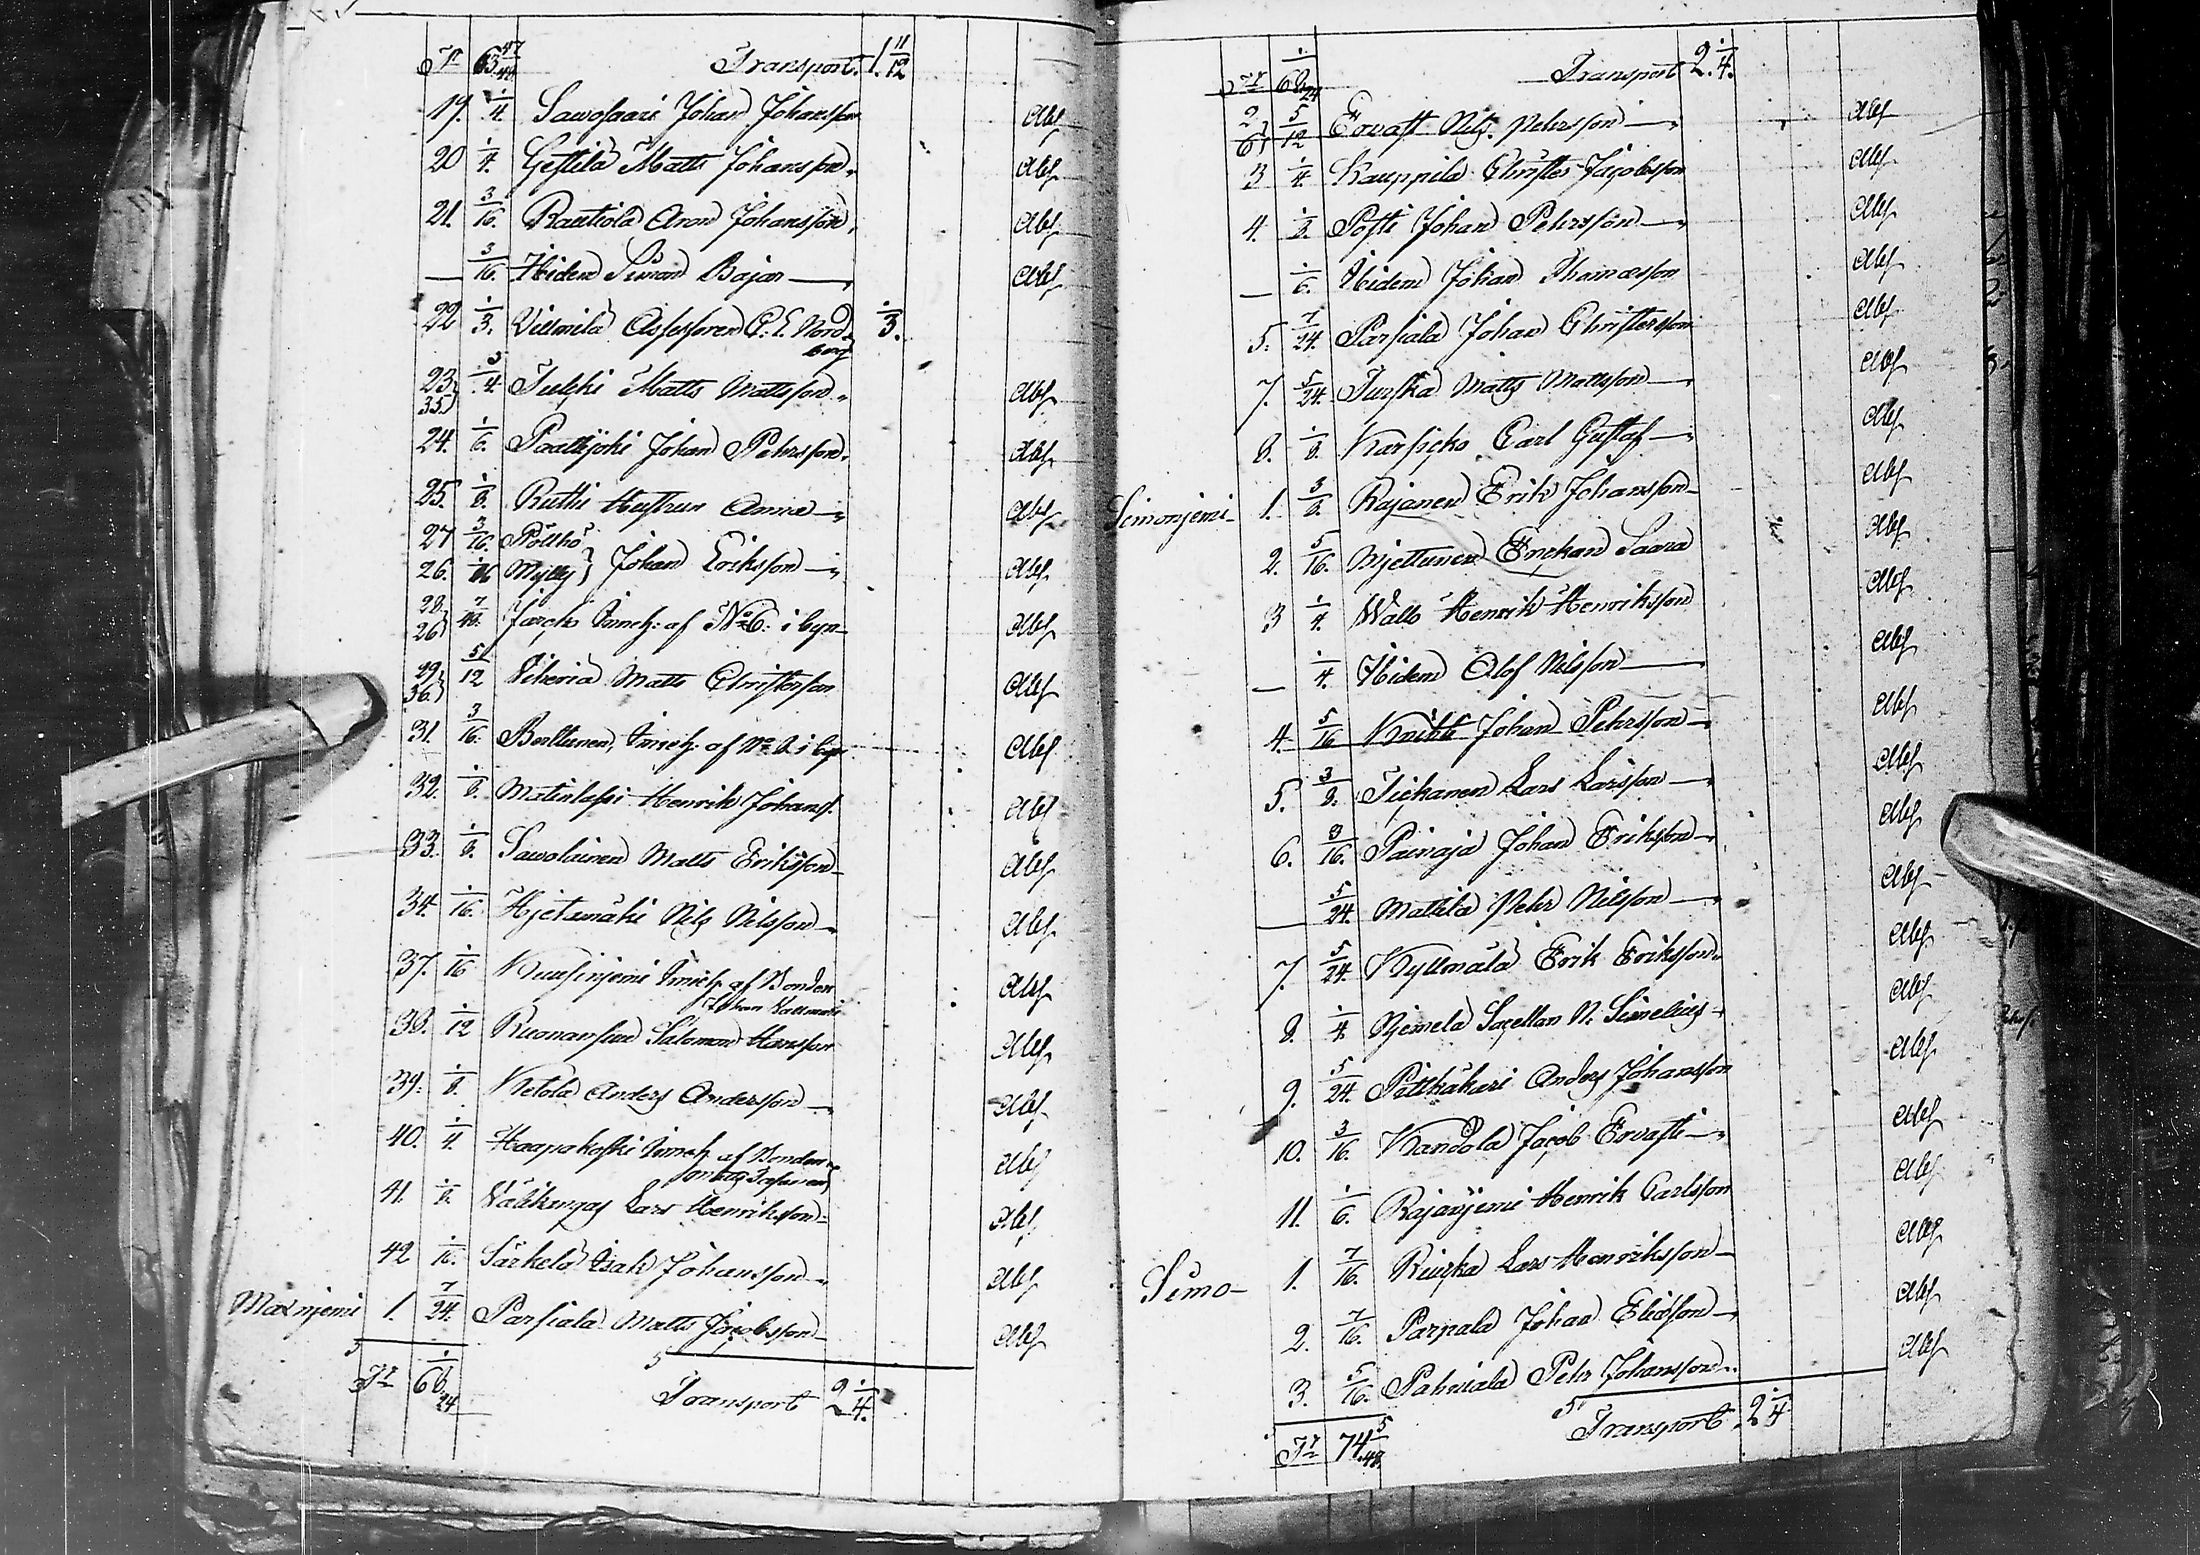 Tr 63 47/48 Transport. 1. 11/12
19. 1/4 Sawosaari Johan Johansson Abs
20 1/4. Gestilä Matts Johansson Abs
21. 3/16. Rautiola Aron Johansson Abs
— 3/16. Hidem Simon Bajar — Abs
22 1/3. Assessoren E. E. Nord- 1/3.
berg
23 3/4. Matts Mattsson Abs
35
24. 1/6. Johan Pehrsson Abs
25. 1/8. Hustrun Anna — Abs
27 3/16. Pöllhö
26. 1/16 Mylly } Johan Eriksson — Abs
28 7/48. Jarcko Inneh: af No 6: i byn Abs
26
29 5/12 Matts Christersson Abs
36
31. 3/16. Inneh: af No 8. i byn Abs
32. 1/8. Matinlassi Henrik Johanss. Abs
33. 1/8. Sawolainen Matts Eriksson Abs
34. 1/16. Hjetamäki Nils Nilsson Abs
37. 1/16 Kuusinjemi Inneh: af Bonden Abs
Johan
38. 1/12 Ruonansuu Salomon Hansson Abs
39. 1/8. Ketola Anders Andersson Abs
40. 1/4. Haapakoski Inneh: af Bonden Abs
41. 1/8. Wälikangas Lars Henriksson Abs
42 1/16. Särkelä Isak Johansson Abs
Maxnjemi 1. 7/24. Parsiala Matts Jacobsson Abs
Tr 68 1/24 Transport 2 1/4.
Tr 68 1/24 Transport 2. 1/4.
2 5/12 Ervast Nils Pehrsson — Abs
6
3 1/4. Kauppila Christer Jacobsson Abs
4. 1/8. Posti Johan Pehrsson — Abs
— 1/6. Hidem Johan Thomasson Abs
5. 7/24. Parsiala Johan Christersson Abs
7. 5/24. Turska Matts Mattsson — Abs
8. 1/8. Karsicko Carl Gustaf — Abs
Simonjemi 1. 3/8. Rajanen Erik Johansson Abs
2. 5/16. Mjettunen Enckan Saara Abs
3 1/4. Wallo Henrik Henriksson Abs
— 1/4. Hidem Olof Nilsson — Abs
4. 5/16 Johan Pehrsson — Abs
5. 3/8. Tickanen Lars Larsson — Abs
6. 3/16. Painaja Johan Eriksson Abs
— 5/24. Mattila Pehr Nilsson — Abs
7. 5/24. Kyllmälä Erik Eriksson Abs
8. 1/4. Njemelä Sacellan N. Simelius Abs
9. 5/24. Pitkäkari Anders Johansson Abs
10. 3/16. Kandola Jacob Ervasti — Abs
11. 1/6. Rajanjemi Henrik Carlsson Abs
Simo- 1. 7/16. Lars Henriksson Abs
2. 7/16. Parpala Johan Eliasson Abs
3. 5/16. Pahnala Pehr Johansson Abs
Tr 74 5/48. Transport 2 1/4